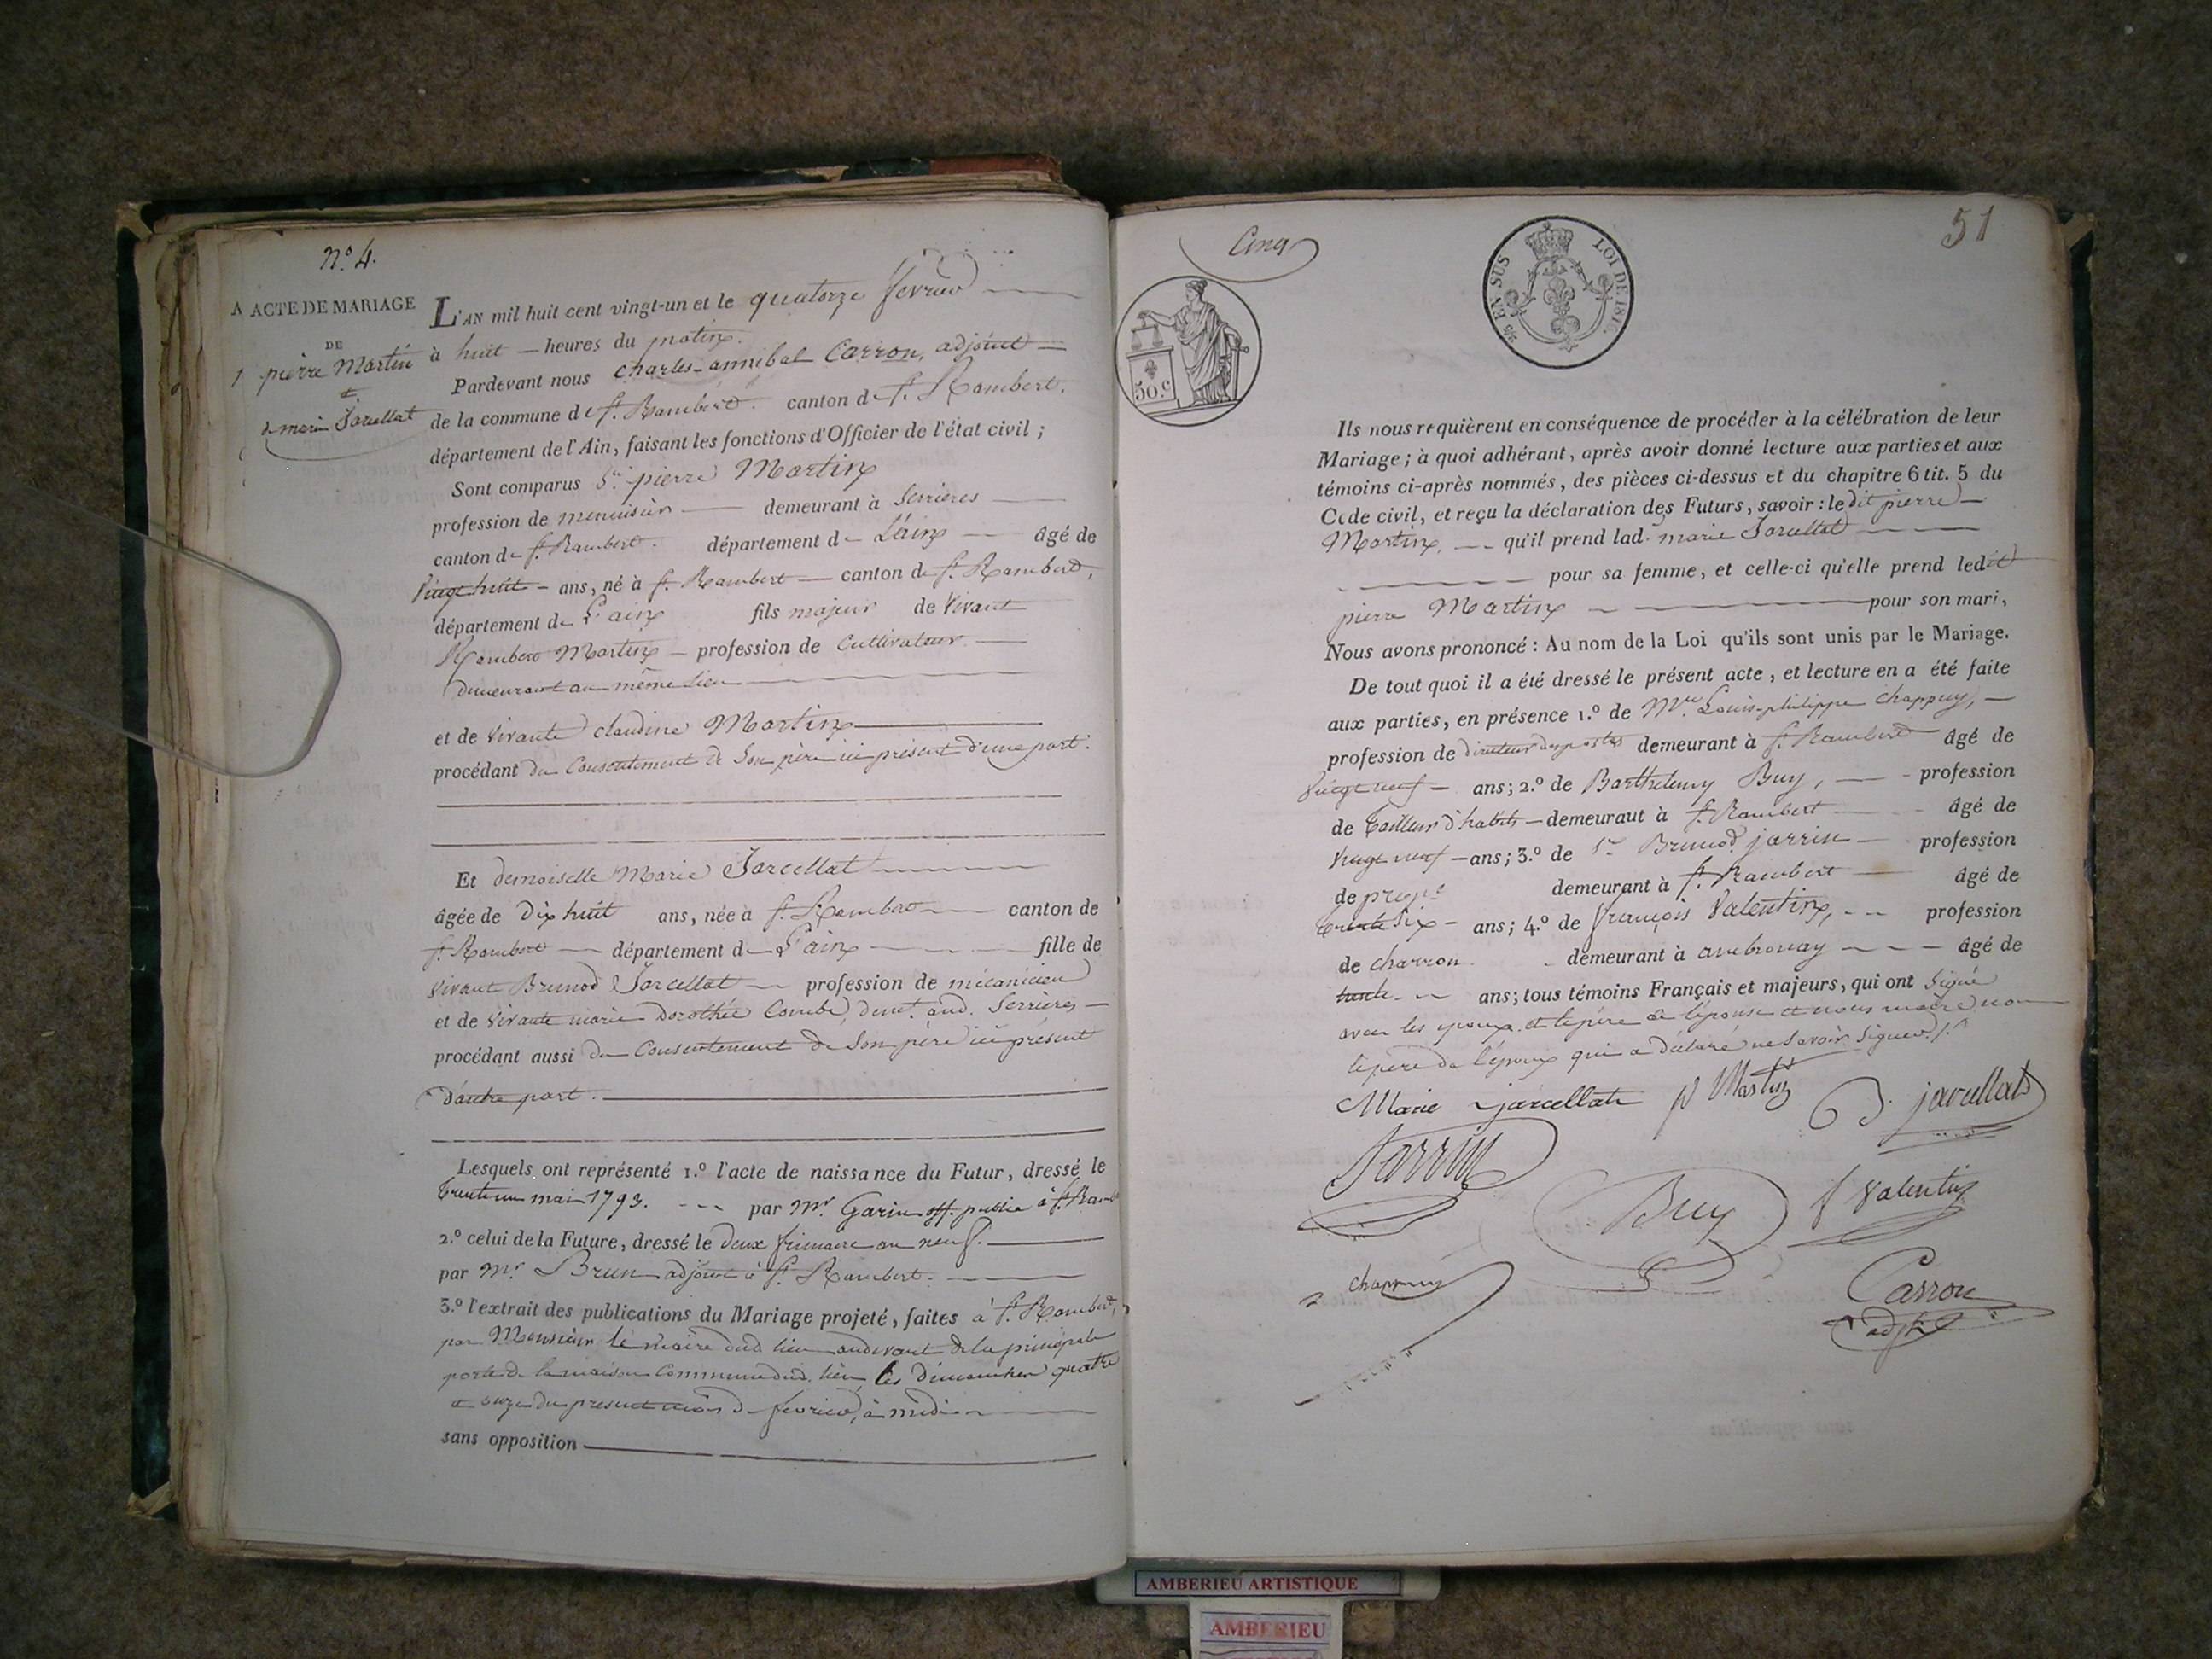 N.o 4.
ACTE DE MARIAGE
DE
pierre Martin
et
marie Jarcellat
L'AN mil huit cent vingt-un et le quatorze fevrier
à huit heures du matin.
Pardevant nous charles-annibal Carron, adjoint
de la commune de St. Rambert. canton de St. Rambert.
département de l'Ain, faisant les fonctions d'Officier de l'état civil ;
Sont comparus Sr. pierre Martin
profession de menuisier demeurant à Serrieres
canton de St. Rambert. département de L'ain âgé de
Vingt huit ans, né à St. Rambert canton de St. Rambert,
département de L'ain fils majeur de Vivant
Rambert Martin profession de Cultivateur
demeurant au même lieu
et de Vivante claudine Martin
procédant du Consentement de Son père ici présent d'une part.
Et demoiselle Marie Jarcellat
âgée de Dix huit ans, née à St. Rambert canton de
St. Rambert département de L'ain fille de
Vivant Brunod Jarcellat profession de mécanicien
et de Vivante marie Dorothée Combe, demt. aud. Serrieres
procédant aussi du Consentement de Son père ici présent
d'autre part.
Lesquels ont représenté 1.o l'acte de naissance du Futur, dressé le
trente un mai 1793. par Mr. Garin off. public à St. Ramb
2.o celui de la Future, dressé le Deux frimaire an neuf.
par Mr. Brun adjoint à St. Rambert.
3.o l'extrait des publications du Mariage projeté, faites à St. Rambert,
par Monsieur le maire dud lieu audevant de la principale
porte de la maison Commune dud. lieu, les Dimanches quatre
et onze du present mois de fevrier, à midi
sans opposition
Cinq
50.c
EN SUS
LOI DE 1816.
51
Ils nous requièrent en conséquence de procéder à la célébration de leur
Mariage ; à quoi adhérant, après avoir donné lecture aux parties et aux
témoins ci-après nommés, des pièces ci-dessus et du chapitre 6 tit. 5 du
Code civil, et reçu la déclaration des Futurs, savoir : le dit pierre
Martin, qu'il prend lad. marie Jarcellat
pour sa femme, et celle-ci qu'elle prend ledit
pierre Martin pour son mari,
Nous avons prononcé : Au nom de la Loi qu'ils sont unis par le Mariage.
De tout quoi il a été dressé le présent acte, et lecture en a été faite
aux parties, en présence 1.o de Louis-philippe Chappuy,
profession de directeur des postes demeurant à St. Rambert âgé de
Vingt neuf ans ; 2.o de Barthelemy Buy, profession
de tailleur d'habits demeuraut à St. Rambert âgé de
Vingt neuf ans ; 3.o de Sr. Brunod jarrin profession
de propre demeurant à St. Rambert âgé de
trente Six ans ; 4.o de françois Valentin, profession
de charron. demeurant à ambronay âgé de
trente ans ; tous témoins Français et majeurs, qui ont Signé
avec les epoux et le père de l'épouse et nous maire non
le père de l'époux qui a déclaré ne Savoir Signer.
Marie jarcellat p Martin jarcellat
Jarrin
Buy f Valentin
chappuy
Carron
adjt
AMBERIEU ARTISTIQUE
AMBERIEU